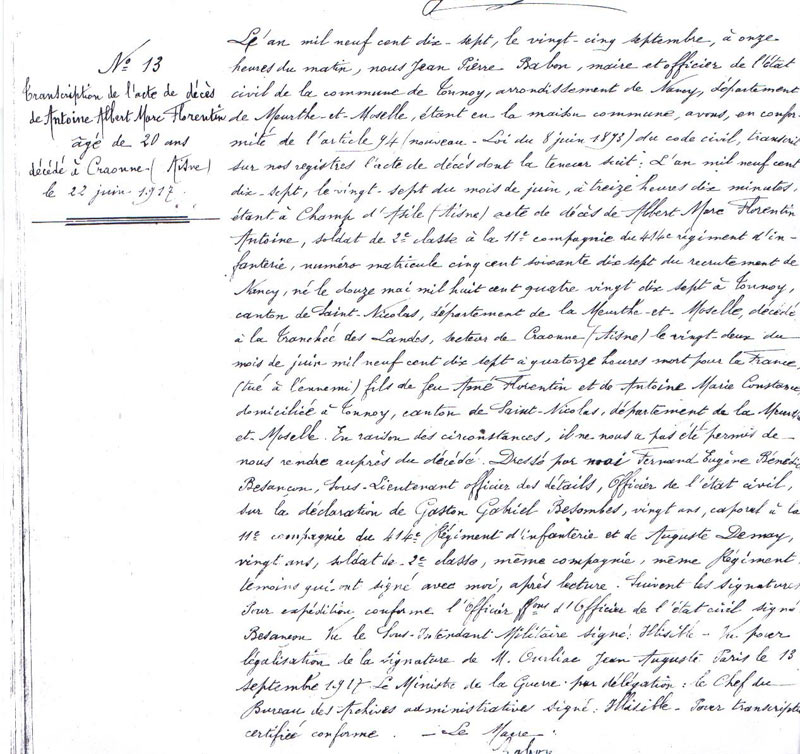 N° 13
Transcription de l'acte de décès
de Antoine Albert Marc Florentin
âgé de 20 ans
décédé à Craonne (Aisne)
le 22 juin 1917.
L'an mil neuf cent dix-sept, le vingt-cinq septembre, à onze
heures du matin, nous Jean Pierre Babon, maire et officier de l'état
civil de la commune de Tonnoy, arrondissement de Nancy, département
de Meurthe-et-Moselle, étant en la maison commune, avons, en confor
mité de l'article 94 (nouveau - Loi du 8 juin 1893) du code civil, transcrit
sur nos registres l'acte de décès dont la teneur suit: L'an mil neuf cent
dix-sept, le vingt-sept du mois de juin, à treize heures dix minutes,
étant à Champ d'Asile (Aisne) acte de décès de Albert Marc Florentin
Antoine, soldat de 2e classe à la 11e compagnie du 414e régiment d'in-
fanterie, numéro matricule cinq cent soixante dix sept du recrutement de
Nancy, né le douze mai mil huit cent quatre vingt dix sept à Tonnoy,
canton de Saint-Nicolas, département de la Meurthe-et-Moselle, décédé
à la Tranchée des Landes, secteur de Craonne (Aisne) le vingt deux du
mois de juin mil neuf cent dix sept à quatorze heures mort pour la France,
(tué à l'ennemi) fils de feu Aimé Florentin et de Antoine Marie Constance
domiciliée à Tonnoy, canton de Saint-Nicolas, département de la Meurthe
et-Moselle. En raison des circonstances, il ne nous a pas été permis de
nous rendre auprès du décédé. Dressé par moi Fernand Eugène Bénédic
Besançon, Sous-Lieutenant officier des détails, Officier de l'état civil,
sur la déclaration de Gaston Gabriel Besombes, vingt ans, caporal à la
11e compagnie du 414e Régiment d'infanterie et de Auguste Demay,
vingt ans, soldat de 2e classe, même compagnie, même Régiment
témoins qui ont signé avec moi, après lecture. Suivent les signatures
Pour expédition conforme l'Officier ffons d'Officier de l'état civil signé
Besançon Vu le Sous-Intendant Militaire signé: Illisible - Vu pour
légalisation de la signature de M. Ourliac Jean Auguste Paris le 13
septembre 1917 Le Ministre de la Guerre par délégation: le Chef du
Bureau des Archives administratives signé: Illisible - Pour transcription
certifiée conforme. - Le Maire.
Babon